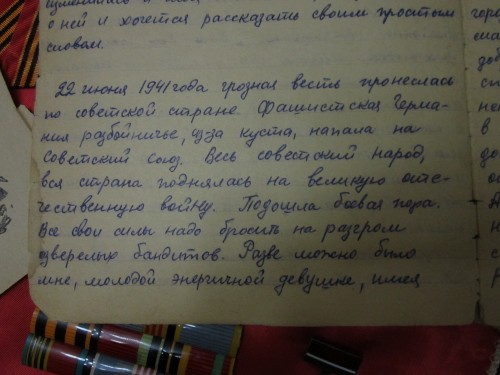 о ней и хочется рассказать своим простым
словом.
22 июня 1941 года грозная весть пронеслась
по советской стране. Фашистская Герма-
ния разбойничье, из-за куста, напала на
Советский Союз. Весь советский народ,
вся страна поднялась на великую оте-
чественную войну. Подошла боевая пора.
Все свои силы надо бросить на разгром
озверелых бандитов. Разве можно было
мне, молодой энергичной девушке, имея